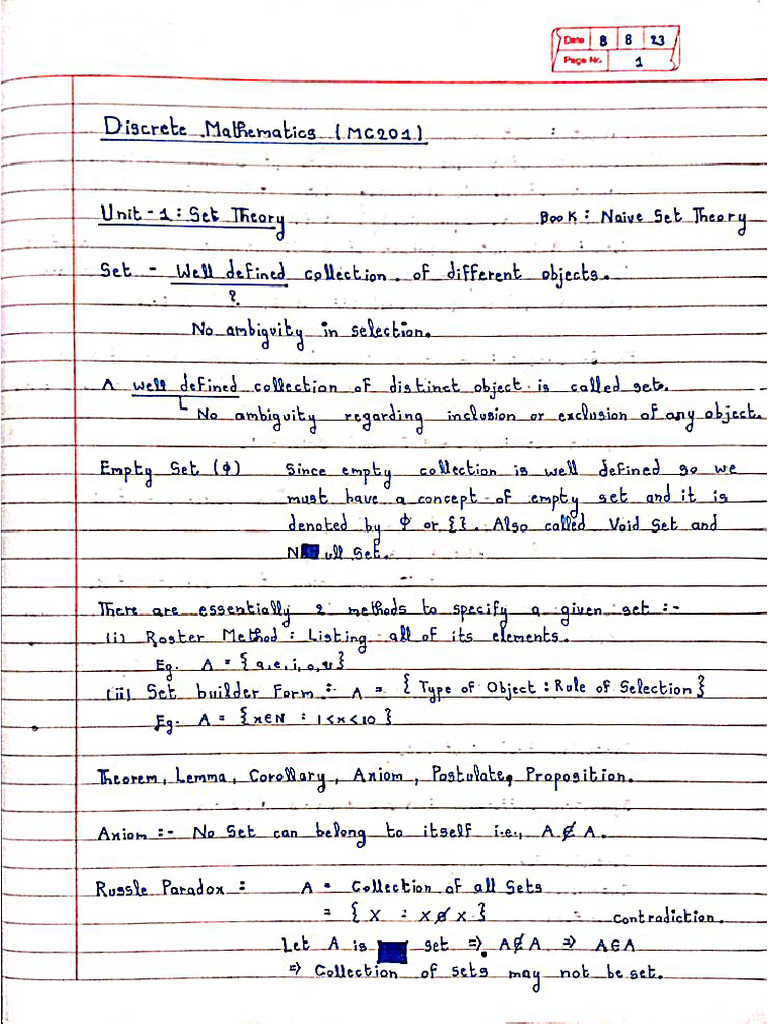 Date 8 8 23
Page No. 1
Discrete Mathematics (MC201)
Unit-1: Set Theory Book: Naive Set Theory
Set - Well defined collection of different objects.
?
No ambiguity in selection.
A well defined collection of distinct object is called set.
No ambiguity regarding inclusion or exclusion of any object.
Empty Set (ϕ) Since empty collection is well defined so we
must have a concept of empty set and it is
denoted by ϕ or {}. Also called Void Set and
Null Set.
There are essentially 2 methods to specify a given set :-
(i) Roster Method : Listing all of its elements.
Eg. A = {a,e,i,o,u}
(ii) Set builder Form :- A = {Type of Object : Rule of Selection}
Eg. A = {x∈N : 1<x<10}
Theorem, Lemma, Corollary, Axiom, Postulate, Proposition.
Axiom :- No Set can belong to itself i.e., A ∉ A.
Russle Paradox : A = Collection of all Sets
= {X : X ∉ X} contradiction.
Let A is set ⇒ A∉A ⇒ A∈A
⇒ Collection of sets may not be set.